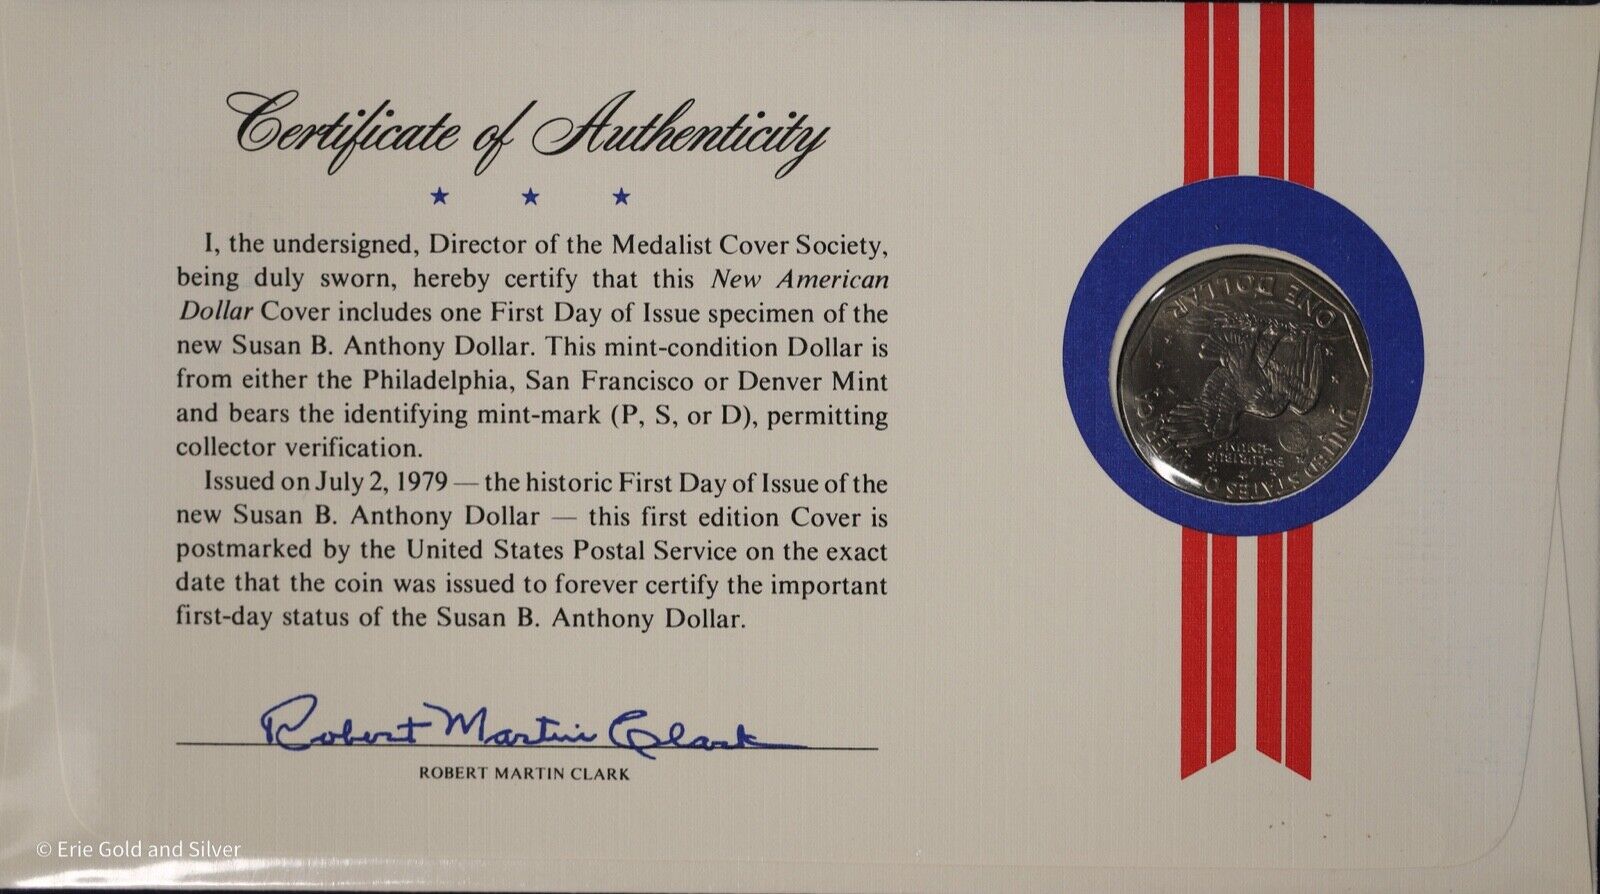 Certificate of Authenticity
I, the undersigned, Director of the Medalist Cover Society,
being duly sworn, hereby certify that this New American
Dollar Cover includes one First Day of Issue specimen of the
new Susan B. Anthony Dollar. This mint-condition Dollar is
from either the Philadelphia, San Francisco or Denver Mint
and bears the identifying mint-mark (P, S, or D), permitting
collector verification.
Issued on July 2, 1979 — the historic First Day of Issue of the
new Susan B. Anthony Dollar — this first edition Cover is
postmarked by the United States Postal Service on the exact
date that the coin was issued to forever certify the important
first-day status of the Susan B. Anthony Dollar.
Robert Martin Clark
ROBERT MARTIN CLARK
UNITED STATES OF
E PLURIBUS
UNUM
ONE DOLLAR
© Erie Gold and Silver